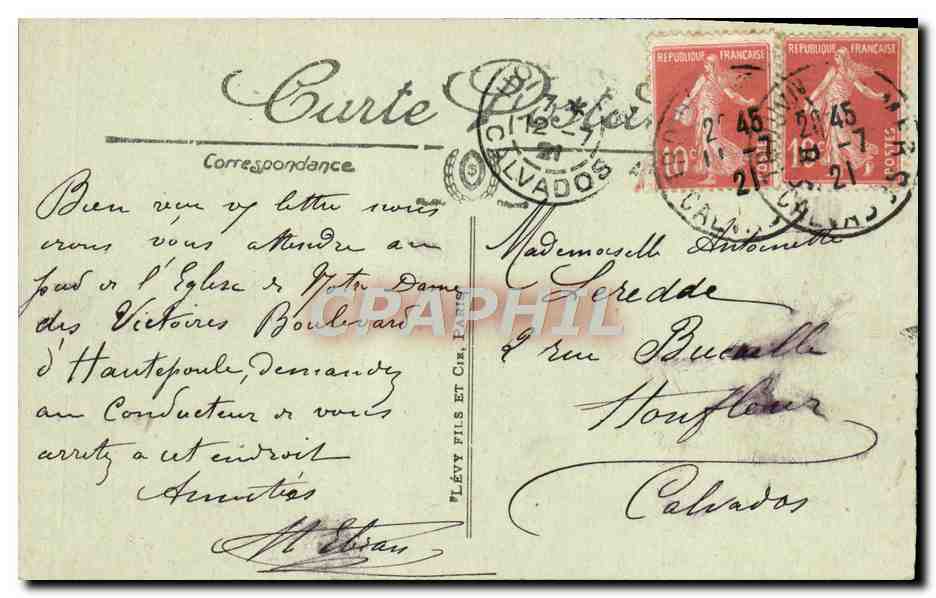 Carte Postale
Correspondance
REPUBLIQUE FRANÇAISE
10c POSTES
REPUBLIQUE FRANÇAISE
10c POSTES
CALVADOS
12 -7
21
20 45
11 -7
21
CALVADOS
20 45
-7
21
CALVADOS
Bien reçu vy lettre nous
irons vous attendre au
pied de l'Eglise de Notre Dame
des Victoires Boulevard
d'Hautepoule, demandez
au Conducteur de vous
arretez a cet endroit
Amitiés
LÉVY FILS ET CIE, PARIS
Mademoiselle Antoinette
Leredde
2 rue Bucaille
Honfleur
Calvados
CPAPHIL